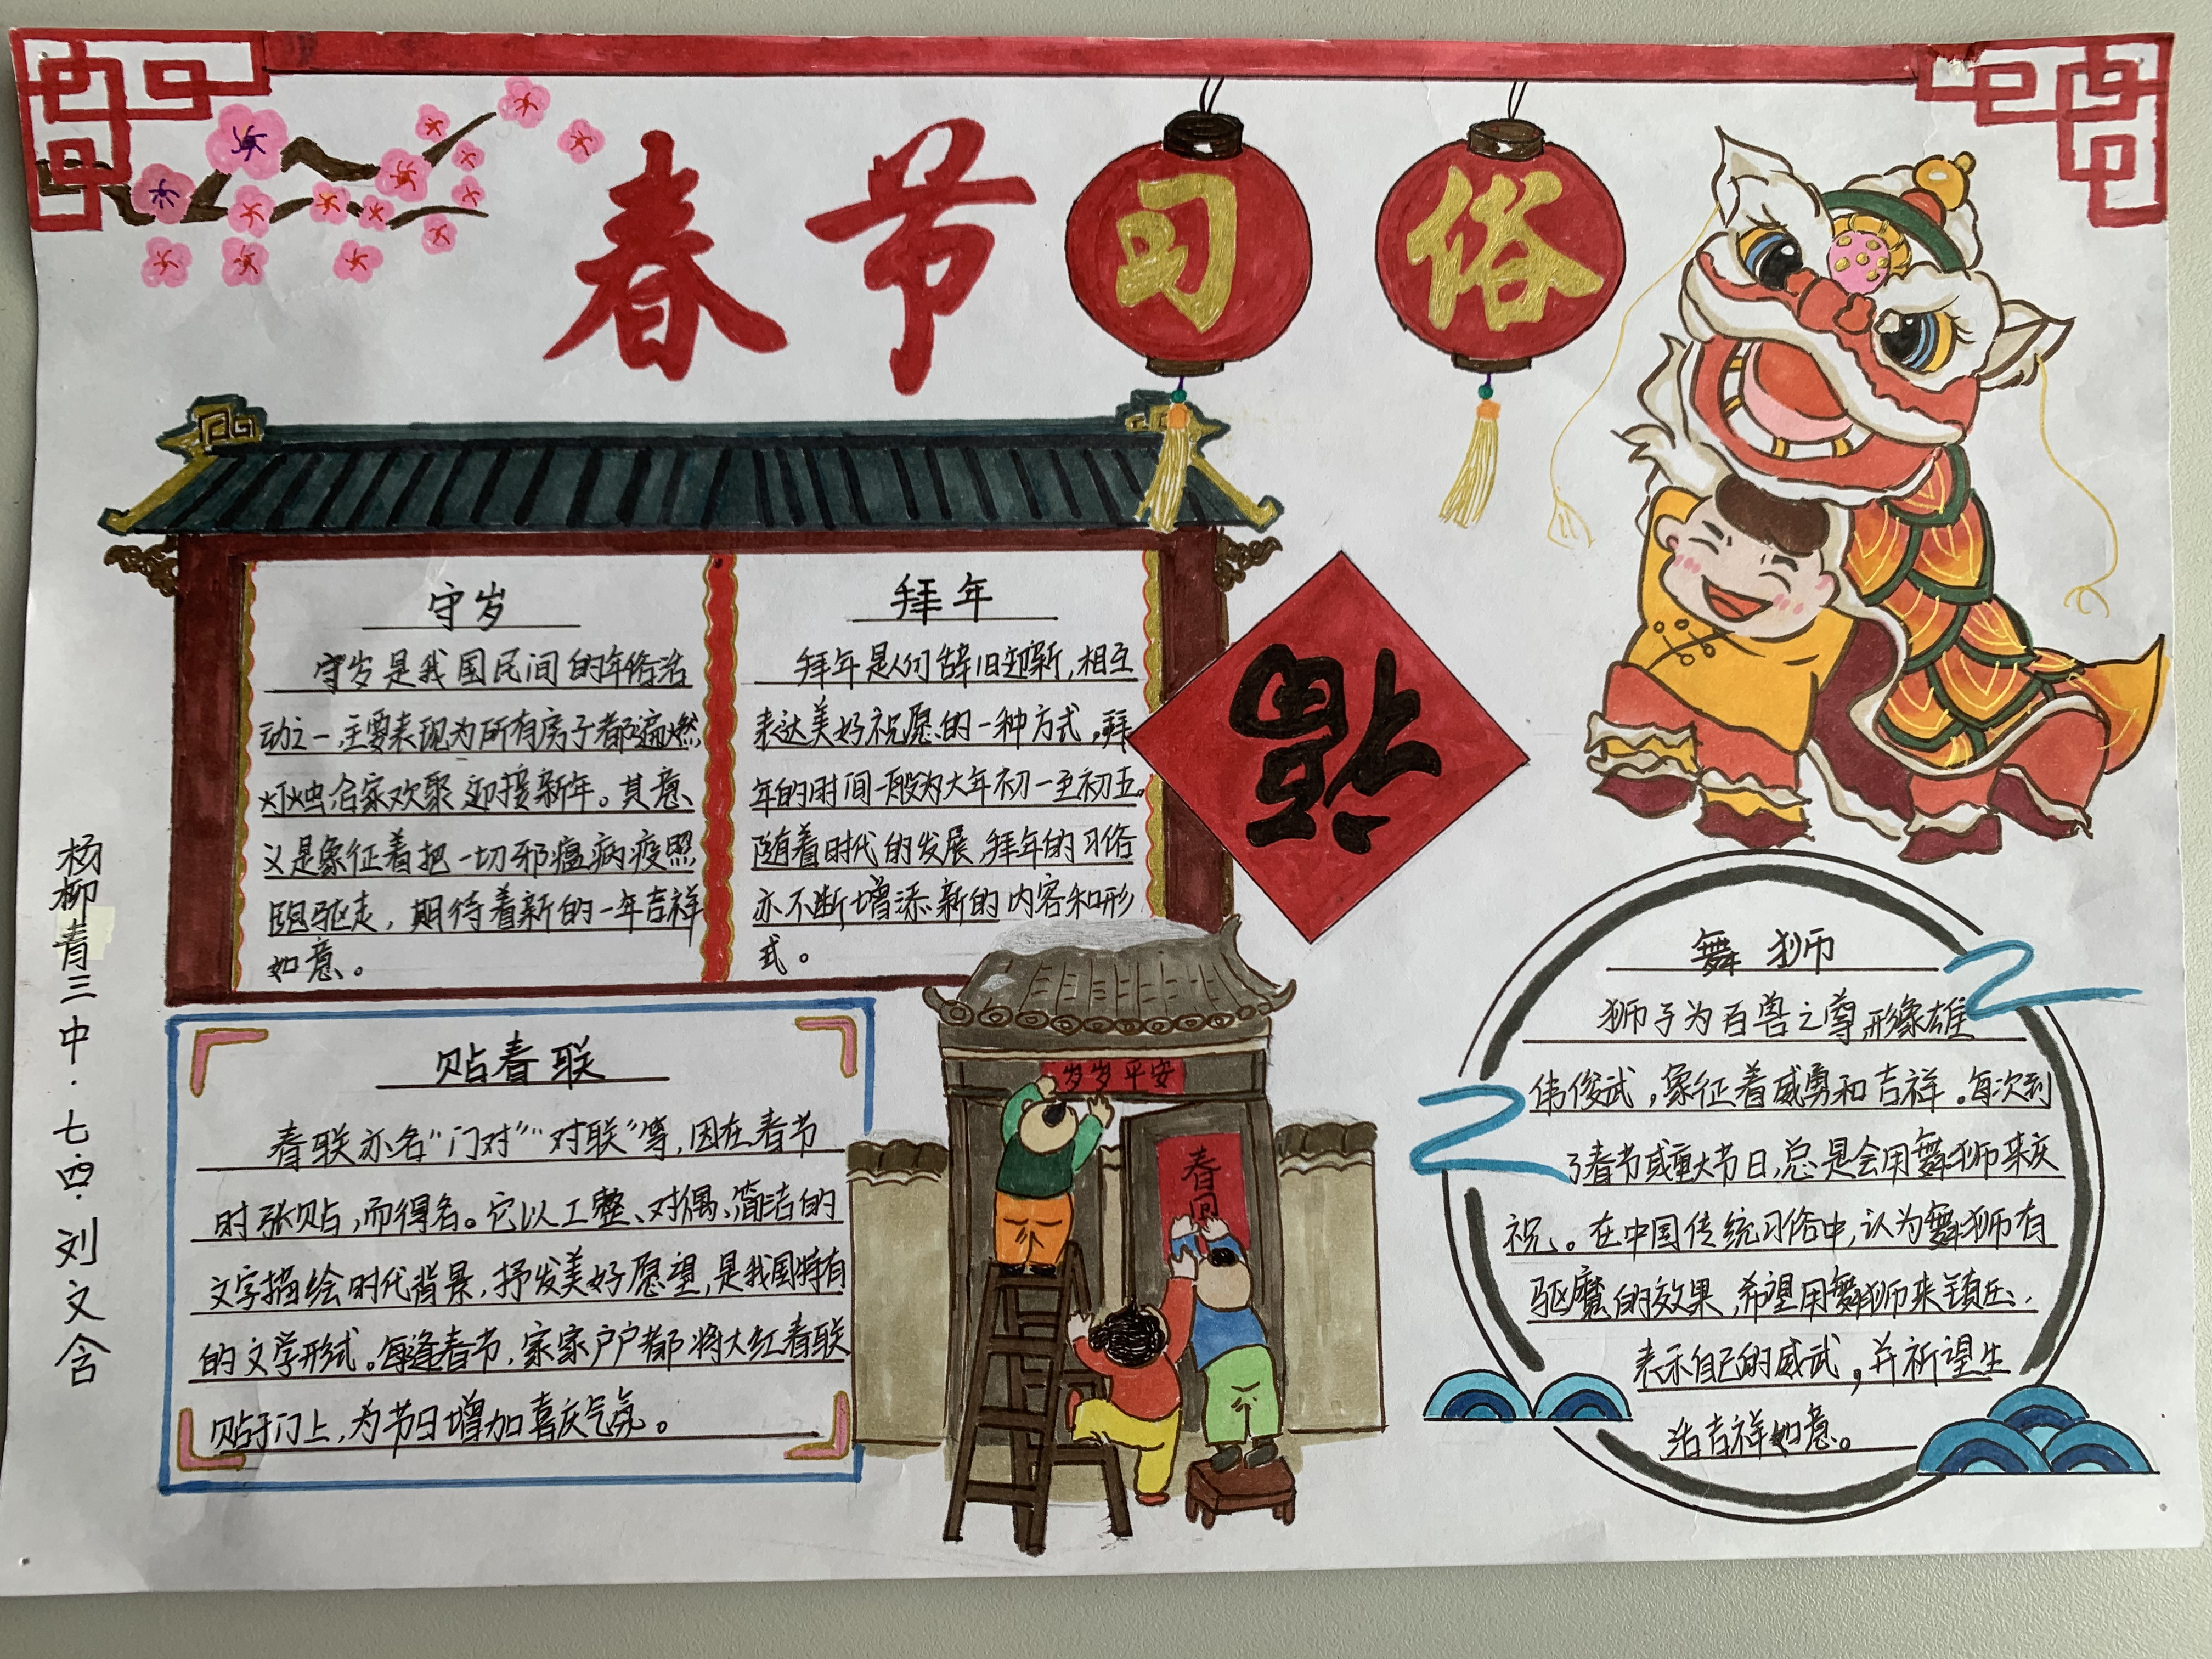 春节习俗
守岁
守岁是我国民间的年俗活
动之一,主要表现为所有房子都遍燃
灯烛合家欢聚,迎接新年。其意
义是象征着把一切邪瘟病疫照
跑驱走,期待着新的一年吉祥
如意。
拜年
拜年是人们辞旧迎新,相互
表达美好祝愿的一种方式,拜
年的时间一般为大年初一至初五。
随着时代的发展,拜年的习俗
亦不断增添新的内容和形
式。
福
贴春联
春联亦名“门对”“对联”等,因在春节
时张贴,而得名。它以工整、对偶、简洁的
文字描绘时代背景,抒发美好愿望,是我国特有
的文学形式。每逢春节,家家户户都将大红春联
贴于门上,为节日增加喜庆气氛。
岁岁平安
春回
舞狮
狮子为百兽之尊,形象雄
伟俊武,象征着威勇和吉祥。每次到
了春节或重大节日,总是会用舞狮来庆
祝。在中国传统习俗中,认为舞狮有
驱魔的效果,希望用舞狮来镇压,
表示自己的威武,并祈望生
活吉祥如意。
杨柳青三中·七·四·刘文含